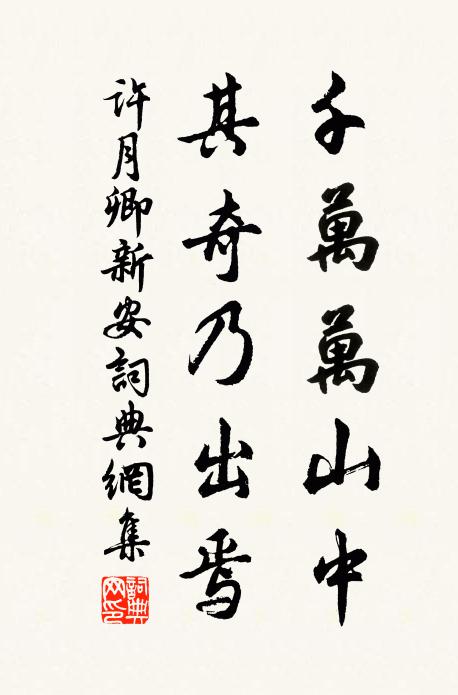 千萬萬山中
其奇乃出焉
許月卿新安詞典網集
詞典网印